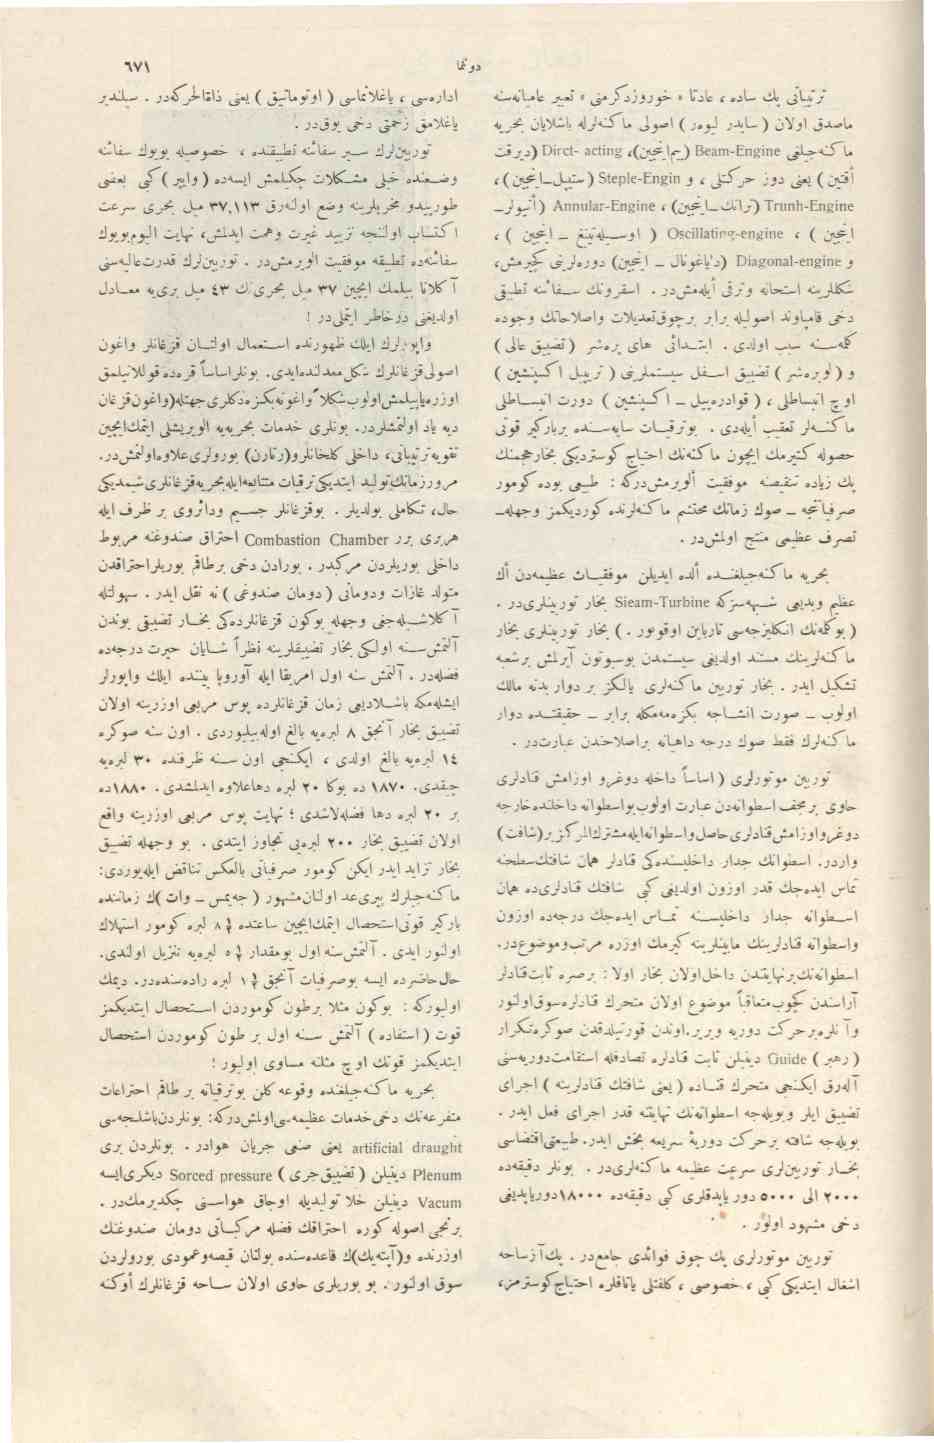 دوننما
٦٧١
ترتيباتى پك ساده ، عادتا « خوروزدكرمنى » تعبير عاميانه‌سنه
ماصدق اولان ( سايدر ليوەر ) اصولى ماكنه‌لرله باشلايان بحريه
ماكنه‌جيلغى Beam-Engine (بيم‌اينجين)، Dirct- acting (ديرقت
آقتين ) يعنى دوز حركتلى ، و Steple-Engin (ستيپل‌ـ‌اينجين) ،
Trunh-Engine (ترانك ـ‌اينجين) ، Annular-Engine (آنيولرـ
اينجين ) ، Oscillating-engine ( اوسيله‌تينغ ـ اينجين ) ،
و Diagonal-engine (دياغونال ـ اينجين) دوره‌لرينى كچيرمش،
شكللرينه استحاله وترقى أيله‌مش‌در . اسقرونك سفائنه تطبيقى
دخى قاپلوند اصوليله برابر برچوق تعديلات واصلاحاتك وجوده
كلمه‌سنه سبب اولدى . ابتدائى هاى پره‌شر (تضييق عالى )
و ( لوپره‌شر ) تضييق اسفل سيستملرينى ( تريپل اكسپنشين )
اوچ انبساطلى ، ( قوادره‌پيل ـ اكسپنشين ) دورت انبساطلى
ماكنه‌لر تعقيب أيله‌دى . بوترقيات سايه‌سنده بربارگير قوتى
حصوله كتيرمك ايچون ماكنه‌نك احتياج كوسترديكى بخارحجمنك
پك زياده تنقيصنه موفقيت ألويرمش‌دركه : طبيعى بوده كومور
صرفياتجه ـ صوك زمانك محتشم ماكنه‌لرنده كورديكمز وجهله‌ـ
تصرف عظيمى منتج اولمش‌در .
بحريه ماكنه‌جيلغنده ألده ايديلن موفقيات عظيمه‌دن أك
عظيم وبديعى شبهه‌سزكه Sieam-Turbine بخار توربينلرى‌در .
( بوكلمه‌نك انكليزجه‌سى تاربايين اوقونور . ) بخار توربينلرى بخار
ماكنه‌لرينك مستند اولديغى سيستمدن بوسبوتون آيرلمش برشعبه
تشكيل ايدر . بخار توربين ماكنه‌لرى يالكز بر دوار بدنه مالك
اولوب ـ صورت انشاجه بكزه‌مه‌مكله برابر ـ حقيقتده دوار
ماكنه‌لرك فقط صوك درجه داهيانه براصلاحندن عبارت‌در .
توربين موتورلرى ( اساساً داخله دوغرو اوزامش قنادلرى
حاوى بر مجفف اسطوانه‌دن عبارت اولوب‌بواسطوانه داخلنده‌خارجه
دوغرواوزامش‌قنادلرى حاصل‌واسطوانه‌ايله‌مشترك‌المركز بر(شافت)
واردر. اسطوانك جدار داخليسنده‌كى قنادلر همان شافتك‌سطحنه
تماس ايده‌جك قدر اوزون اولديغى كبى شافتك قنادلرى‌ده همان
اسطوانه جدار داخليسنه تماس ايده‌جك درجه‌ده اوزون
واسطوانه قنادلرينك مابينلرينه كيرمك اوزره مرتب‌وموضوع‌در.
اسطوانه‌نك برنهايتندن داخل‌اولان بخار اولا : برصره ثابت‌قنادلر
آراسندن كچوب متعاقباً موضوع اولان متحرك قنادلره‌سوق‌اولنور
وآنلره‌برحركت دوريه ويرير.اوندن قورتيلدقدن صوكره‌تكرار
(رهبر) Guide دينيلن ثابت قنادلره تصادفله استقامت‌دوريه‌سنى
آلەرق ايكنجى متحرك قناده ( يعنى شافتك قنادلرينه ) اجراى
تضييق ايلر وبويله‌جه اسطوانه‌نك نهايتنه قدر اجراى فعل ايدر .
بويله‌جه شافته برحركت دورية سريعه بخش ايدر. طبيعتى‌اقتضاسى
بخار توربين‌لرى سرعت عظيمه ماكنه‌لرى‌در . بونلر دقيقه‌ده
٢٠٠٠ الى ٥٠٠٠ دور ياپدقلرى كبى دقيقه‌ده ١٨٠٠٠ دورياپديغى
دخى مشهود اولور .
توربين موتورلرى پك چوق فوائدى جامع‌در . پك‌آزساحه
اشغال ايتديكى كبى ، خصوصى ، كلفتلى ياتاقلره احتياج‌كوسترمز،
اداره‌سى ، ياغلانماسى ( اوتوماتيق ) يعنى ذاتاالحركه‌در . سيلنديز
ياغلامق زحمتى دخى يوق‌در .
توربين‌لرك سير سفائنه تطبيقنده ، خصوصيله بويوك سفائنه
وضعنده خيلى مشكلات چكيلمش ايسه‌ده (وايپر) كبى بعضى
طورپيدو مخربلرينه وضع اولنەرق ٣٧,١١٣ ميل بحرى سرعت
اكتساب اولنجه تزييد غيرت وهمت ايدلمش، نهايت اليوم‌بويوك
سفائنه‌ده تطبيقه موفقيت الويرمش‌در . توربين‌لرك قدرت‌عاليه‌سنى
آكلاتا بيلمك ايچين ٣٧ ميل بحرى‌نك ٤٣ ميل برى‌يه معادل
اولديغنى درخاطر ايتملى‌در !
واپورلرك ايلك ظهورنده استعمال اولنان قزغانلر واغون
اصولى‌قزغانلرك شكل‌معدلنده‌ايدى. بونلراساساً قره‌ده‌قوللانيلمق
اوزره‌ياپيلمش‌اولوب‌شكلاً واغونه‌بكزه‌دكلرى‌جهتله(واغون‌قزغان
ديه ياد اولنمشلردر. بونلرى خدمات بحريه‌يه الويريشلى ايتمك‌ايچين
تقويه‌ترتيباتى، داخلى كلخانلرو(رتارن) بورولرى‌علاوه‌اولنمش‌در.
مرورزمانك‌توليد ايتديكى‌ترقيات متتابعه‌ايله‌بحريه‌قزغانلرى‌شيمديكى
حال، تكاملى بولديلر . بوقزغانلر جسيم ودائروى بر ظرف ايله
هربرى برر Combastion Chamber احتراق صندوغنه مربوط
داخلى بوريلردن مركبدر . بورادن دخى برطاقم بوريلراحتراقدن
متولد غازات ودومانى ( دومان صندوغى ) نه نقل ايدر . سهولتله
آكلاشيله‌جغى وجهله بوكون قزغانلرده‌كى بخار تضييقى بوندن
آلتمش‌سنه اولكى بخار تضييقلرينه نظراً شايان حيرت درجه‌ده
فضله‌در . آلتمش سنه اول امريقا ايله آوروپا بيننده ايلك واپورلر
ايشله‌مكه باشلاديغى زمان قزغانلرده پوس مربعى اوزرينه اولان
تضييق بخار آنجق ٨ ليره‌يه بالغ اوله‌بيليوردى . اون سنه صوكره
١٤ ليره‌يه بالغ اولدى ، ايكنجى اون سنه ظرفنده ٣٠ ليره‌يه
چيقدى. ١٨٧٠ ده بوكا ٢٠ ليره دهاعلاوه ايدلمشدى. ١٨٨٠ده
بر ٢٠ ليره دها فضله‌لاشدى ؛ نهايت پوس مربعى اوزرينه واقع
اولان تضييق بخار ٢٠٠ ليره‌يى تجاوز ايتدى . بو وجهله تضييق
بخار تزايد ايدر ايكن كومور صرفياتى بالعكس تناقض ايله‌يوردى:
ماكنه‌جيلرك پيرى‌عد اولنان‌مشهور ( جه‌يمس ـ وات )ك زماننده
باركير قوتى‌استحصال ايتمك‌ايچين ساعتده ٨ ليره كومور استهلاك
اولنور ايدى . آلتمش‌سنه اول بومقدار ٥ ليره‌يه تنزيل اولندى.
حال‌حاضرده ايسه بوصرفيات آنجق ١ ليره راده‌سنده‌در. ديمك
اوليوركه : بوكون مثلا برطون كوموردن استحصال ايتديكمز
قوت ( استفاده ) آلتمش سنه اول بر طون كوموردن استحصال
ايتديكمز قوتك اوچ مثلنه مساوى اوليور !
بحريه ماكنه‌جيلغنده وقوعه كلن بوترقياته بر طاقم اختراعات
متفرعه‌نك دخى‌خدمات عظيمه‌سى‌اولمش‌دركه: بونلردن‌باشليجه‌سى
artificial draught يعنى صنعى جريان هوادر . بونلردن برى
Plenum دينيلن ( تضييق‌جرى ) Sorced pressure ديكرى‌ايسه
Vacum دينيلن خلا توليديله اوجاق هواسنى چكديرمك‌در .
برنجى اصوله كوره احتراقك فضله مركباتى دومان صندوغنك
اوزرنده و(آيته‌پك)ك قاعده‌سنده بولنان قيصه‌وعمودى بورولردن
سوق اولنور . بو بوريلرى حاوى اولان ساحه قزغانلرك أوكنه